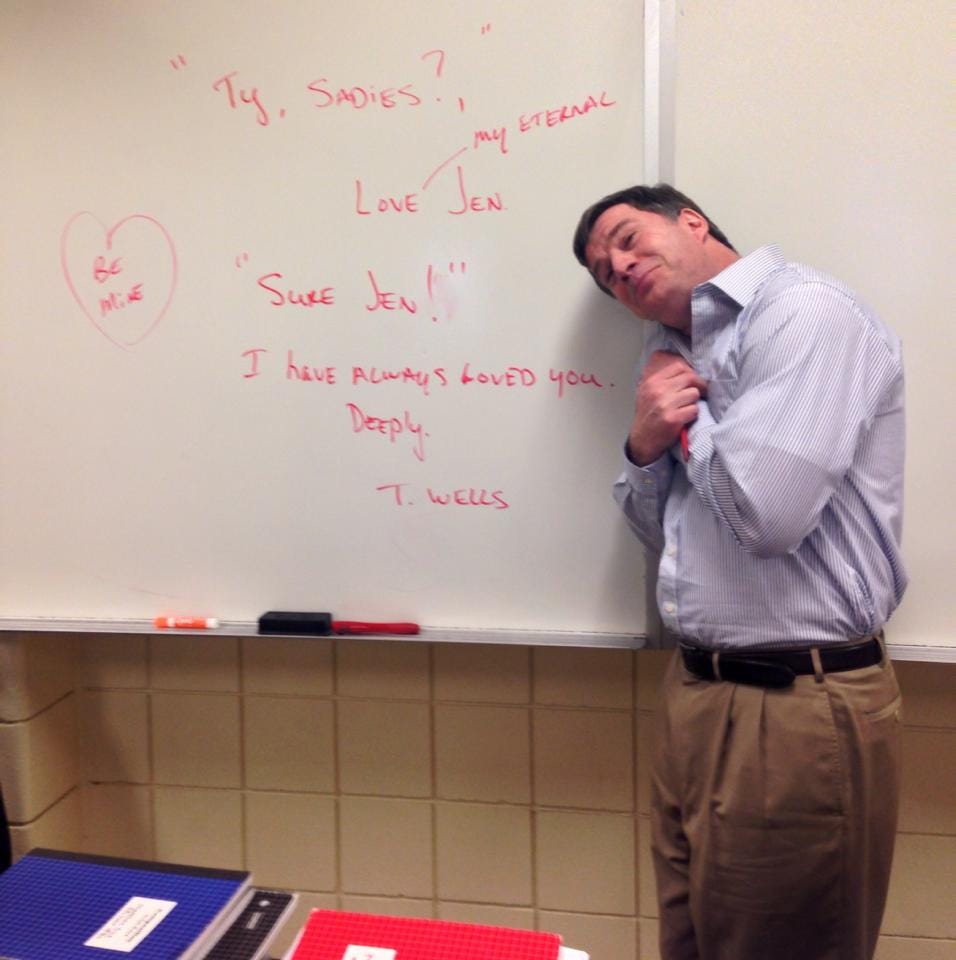 "Ty, SADIES?,"
my ETERNAL
LOVE JEN.
BE
MINE
"SURE JEN!"
I have ALWAYS LOVED you.
DEEPly.
T. WELLS